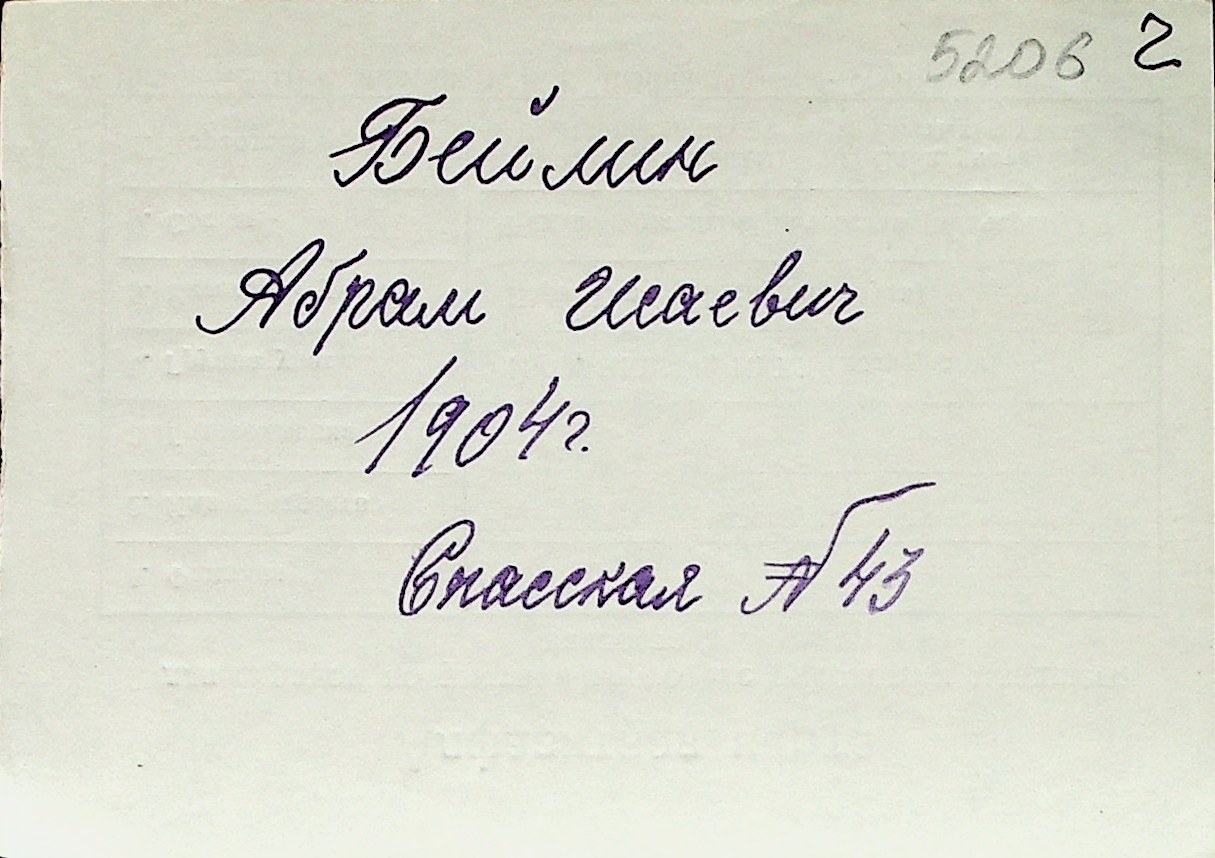 5206 2
Беймин
Абрам Исаевич
1904г.
Спасская № 43